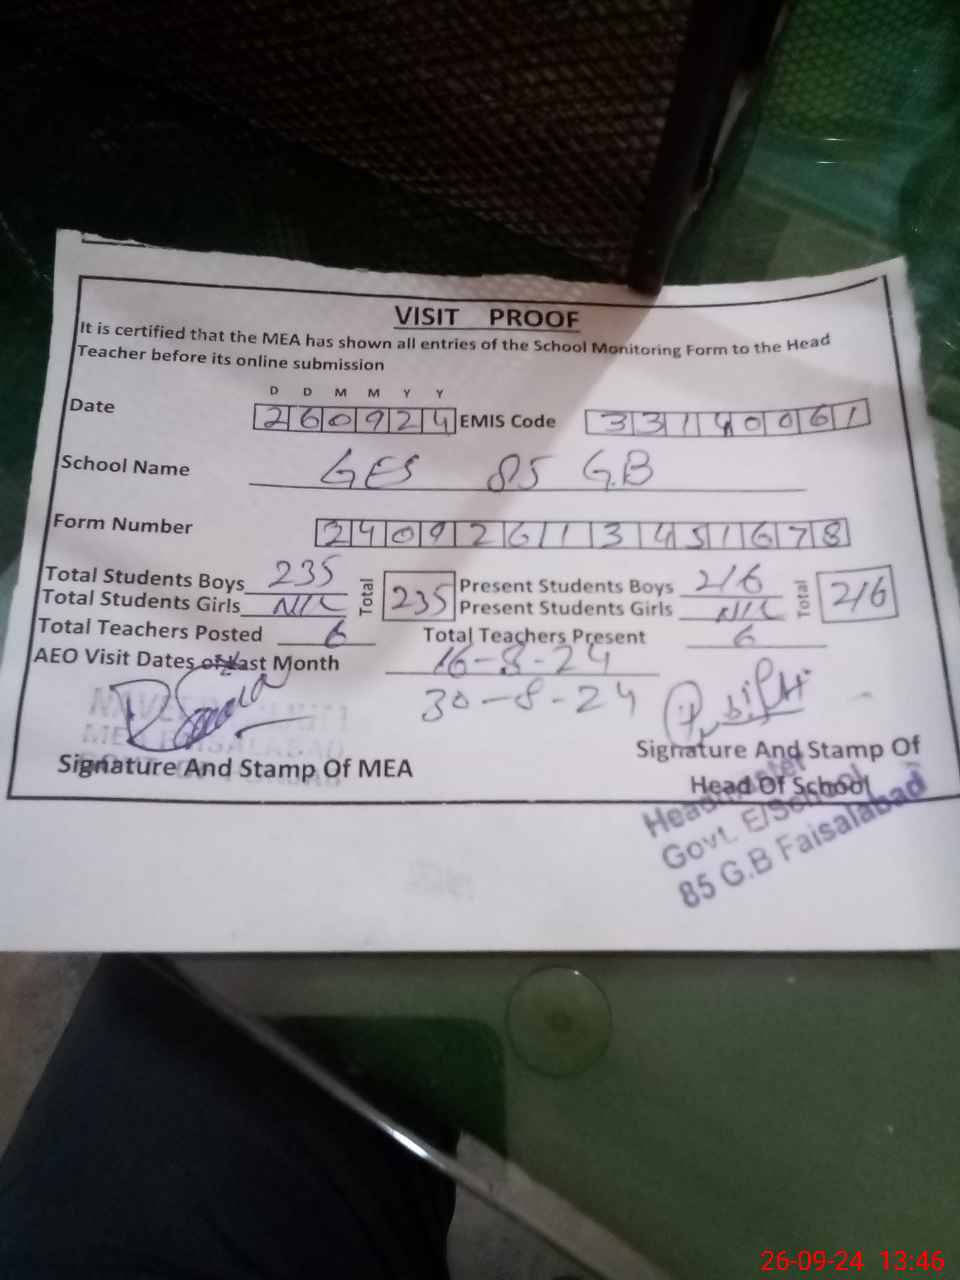 VISIT PROOF
It is certified that the MEA has shown all entries of the School Monitoring Form to the Head
Teacher before its online submission
D D M M Y Y
Date 260924 EMIS Code 33140061
School Name GES 85 G.B
Form Number 24092613451678
Total Students Boys 235 Total 235 Present Students Boys 216 Total 216
Total Students Girls Nil Present Students Girls Nil
Total Teachers Posted 6 Total Teachers Present 6
AEO Visit Dates of last Month 16-8-24
30-8-24
Signature And Stamp Of MEA
Signature And Stamp Of
Head Of School
Headmaster
Govt. E/School
85 G.B Faisalabad
26-09-24 13:46